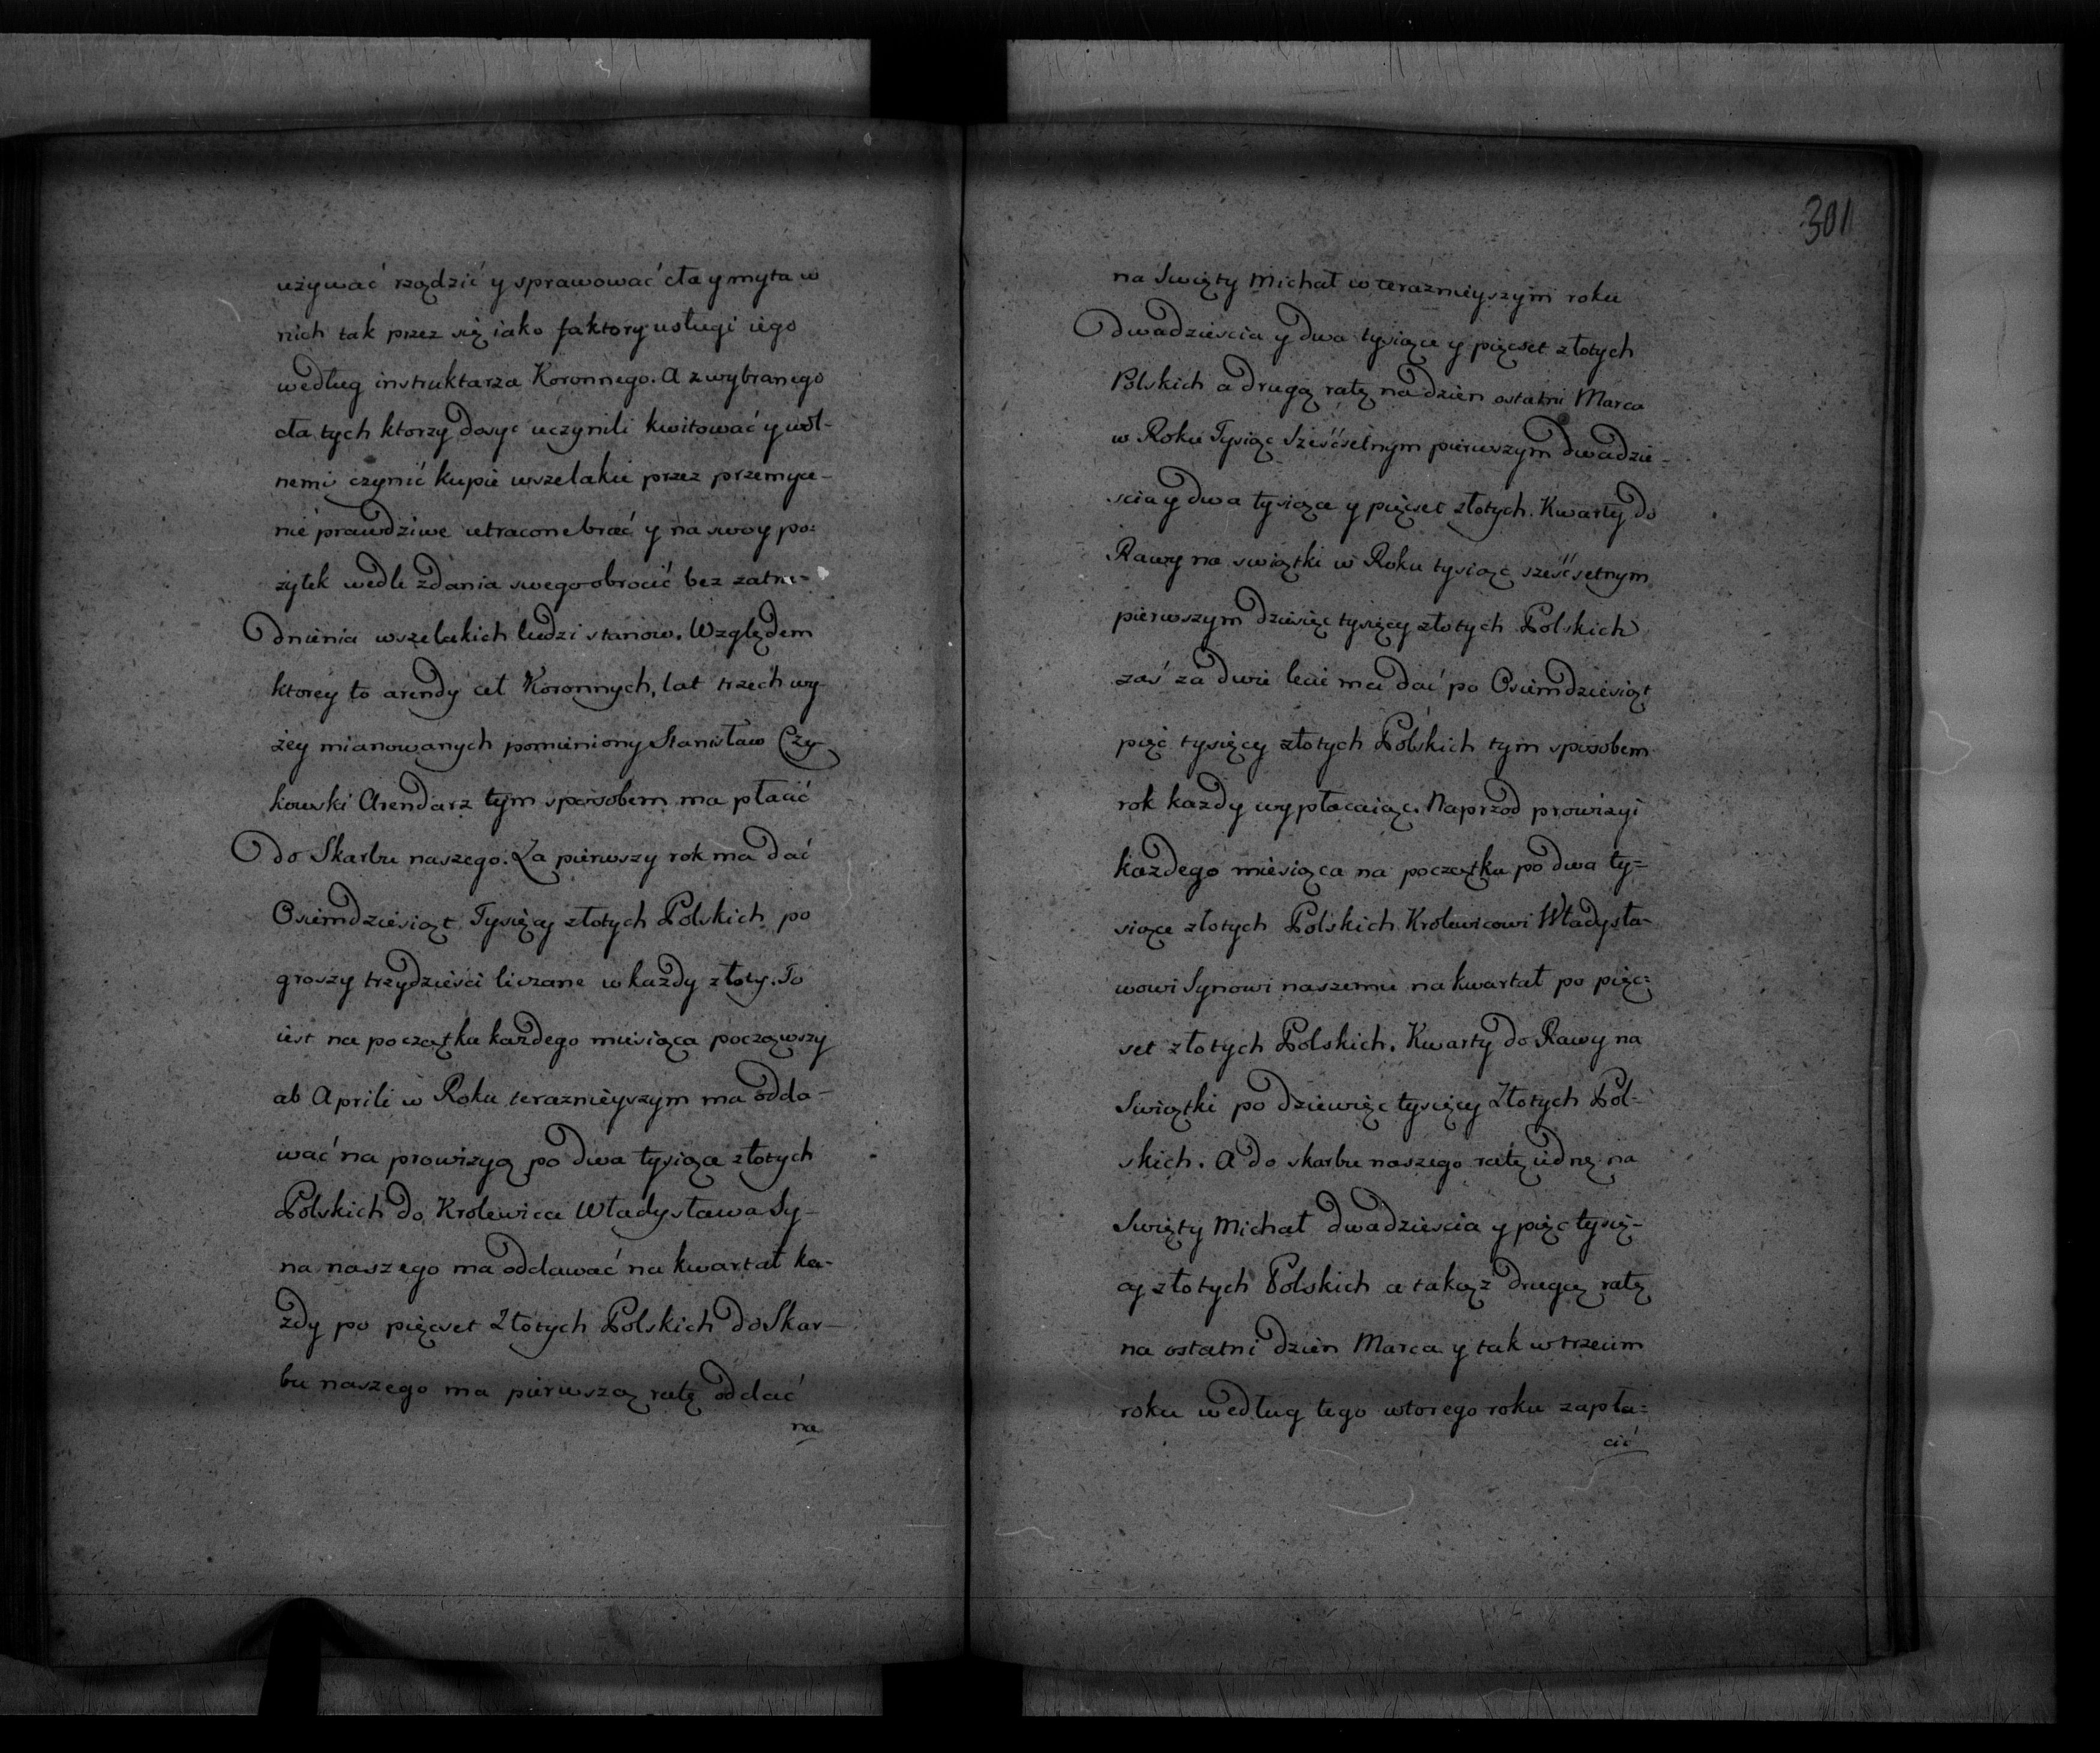 używać rządzić y sprawować cła y myta w
nich tak przez się iako faktory usługi iego
według instruktarza Koronnego. A z wybranego
cła tych ktorzy dosyc uczynili kwitować y wol-
nemi czynić kupie wszelakie przez przemyce-
nie prawdziwe utracone brać y na swoy po=
żytek wedle zdania swego obrocić bez zatru=
dnienia wszelakich ludzi stanow. Względem
ktorey to arendy ceł Koronnych, lat trzech wy-
żey mianowanych pomieniony Stanisław Czy-
kowski Arendarz tym sposobem ma płacić
do Skarbu naszego. Za pierwszy rok ma dać
Osiemdziesiąt Tysięcy złotych Polskich po
groszy trzydzieści liczane w każdy złoty. To
iest na początku każdego miesiąca począwszy
ab Aprili w Roku teraznieyszym ma odda-
wać na prowizyą po dwa tysiąca złotych
Polskich do Krolewica Władysława Sy-
na naszego ma oddawać na kwartał ka-
żdy po pięcset Złotych Polskich do Skar-
bu naszego ma pierwszą ratę oddać
na
301
na Swięty Michał w terazmieyszym roku
Dwadziescia y dwa tysiąca y pięcset złotych
Polskich a drugą ratę na dzien ostatni Marca
w Roku Tysiąc Sześćsetnym pierwszym dwadzie-
scia y dwa tysiąca y pięcset złotych. Kwarty do
Rawy na swiątki w Roku tysiąc sześćsetnym
pierwszym dziesięc tysięcy złotych Polskich
zaś za dwie lecie ma dać po Osiemdziesiąt
pięć tysięcy złotych Polskich tym sposobem
rok kazdy wypłacaiąc. Naprzod prowizyi
każdego miesiąca na początku po dwa ty=
siące złotych Polskich Krolewicowi Władysła-
wowi Synowi naszemu na kwartał po pięc=
set złotych Polskich. Kwarty do Rawy na
Swiątki po dziewięc tysięcy Złotych Pol-
skich. A do skarbu naszego ratę iednę na
Swięty Michał dwadziescia y pięc tysię-
cy złotych Polskich a takąż drugą ratę
na ostatni dzien Marca y tak w trzecim
roku według tego wtorego roku zapła=
cić